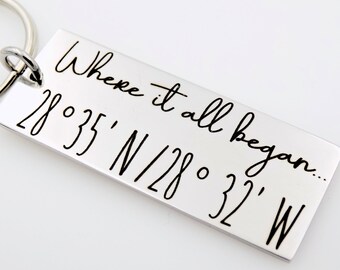 Where it all began...
28°35'N/28°32'W